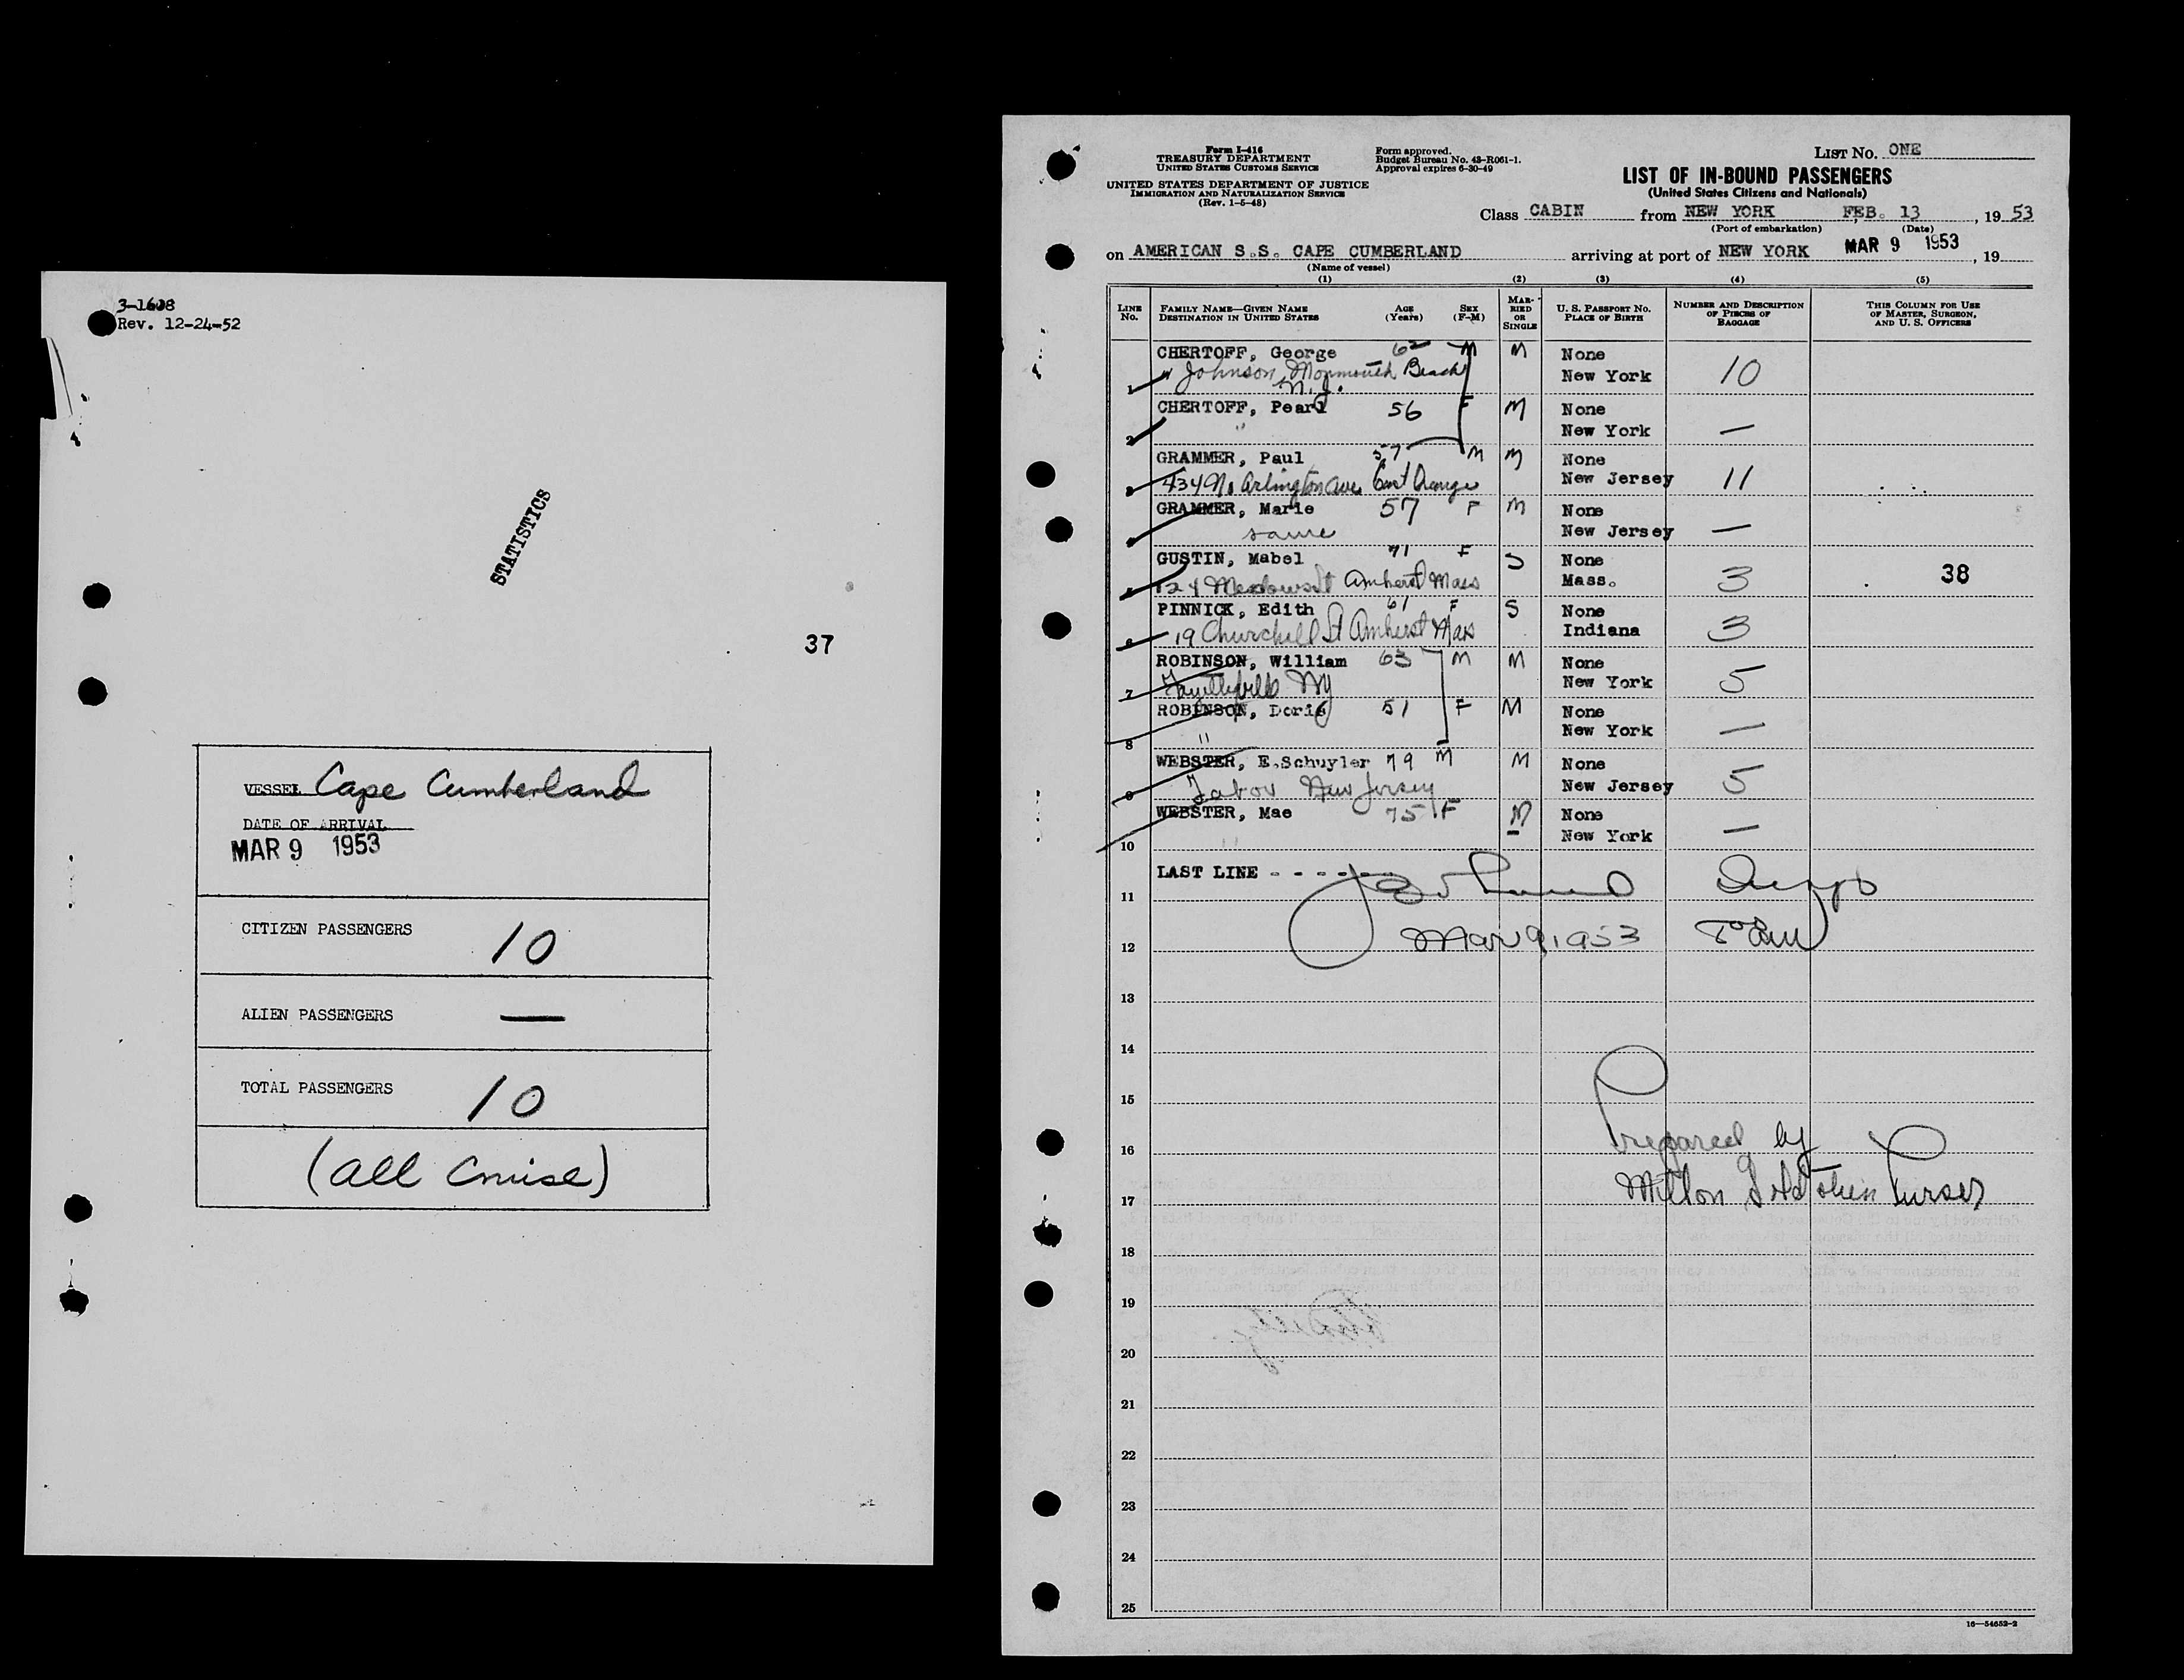 3-1608
Rev. 12-24-52
STATISTICS
37
VESSEL Cape Cumberland
DATE OF ARRIVAL
MAR 9 1953
CITIZEN PASSENGERS 10
ALIEN PASSENGERS —
TOTAL PASSENGERS 10
(all Cruise)
Form I-416
TREASURY DEPARTMENT
UNITED STATES CUSTOMS SERVICE
UNITED STATES DEPARTMENT OF JUSTICE
IMMIGRATION AND NATURALIZATION SERVICE
(Rev. 1-5-48)
Form approved.
Budget Bureau No. 43-R061-1.
Approval expires 6-30-49
LIST No. ONE
LIST OF IN-BOUND PASSENGERS
(United States Citizens and Nationals)
Class CABIN from NEW YORK FEB. 13, 19 53
(Port of embarkation) (Date)
on AMERICAN S.S. CAPE CUMBERLAND arriving at port of NEW YORK MAR 9 1953, 19
(Name of vessel)
(1) (2) (3) (4) (5)
LINE No. FAMILY NAME—GIVEN NAME DESTINATION IN UNITED STATES AGE (Years) SEX (F-M) MARRIED OR SINGLE U. S. PASSPORT NO. PLACE OF BIRTH NUMBER AND DESCRIPTION OF PIECES OF BAGGAGE THIS COLUMN FOR USE OF MASTER, SURGEON, AND U. S. OFFICERS
CHERTOFF, George 62 M M None
1 Johnson Monmouth Beach New York 10
N.J.
CHERTOFF, Pearl 56 F M None
2 " New York —
GRAMMER, Paul 57 M M None
3 434 No Arlington Ave East Orange New Jersey 11
GRAMMER, Marie 57 F M None
4 same New Jersey —
GUSTIN, Mabel 71 F S None
5 Amherst Mass Mass. 3 38
PINNICK, Edith 61 F S None
6 19 Churchill St Amherst Mass Indiana 3
ROBINSON, William 63 M M None
7 NY New York 5
ROBINSON, Doris 51 F M None
8 " New York —
WEBSTER, E.Schuyler 79 M M None
9 Tabor New Jersey New Jersey 5
WEBSTER, Mae 75 F M None
10 " New York —
LAST LINE - - - - - -
11
12 Mar 9, 1953
13
14
15
16 Prepared by
17 Milton Purser
18
19
20
21
22
23
24
25
16—54652-2